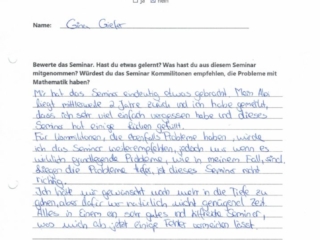 ja nein
Name:
Bewerte das Seminar. Hast du etwas gelernt? Was hast du aus diesem Seminar
mitgenommen? Würdest du das Seminar Kommilitonen empfehlen, die Probleme mit
Mathematik haben?
Mir hat das Seminar eindeutig etwas gebracht. Mein Abi
liegt mittlerweile 2 Jahre zurück und ich habe gemerkt,
dass ich sehr viel einfach vergessen habe und dieses
Seminar hat einige Lücken gefüllt.
Für Kommilitonen, die ebenfalls Probleme haben, würde
ich das Seminar weiterempfehlen, jedoch nur wenn es
wirklich grundlegende Probleme, wie in meinem Fall, sind.
die Probleme tiefer, ist dieses Seminar nicht
richtig.
Ich hätte mir gewünscht noch mehr in die Tiefe zu
gehen, aber dafür war natürlich nicht genügend Zeit.
Alles in Einem ein sehr gutes und helfendes Seminar,
was mich ab jetzt einige Fehler vermeiden lässt.